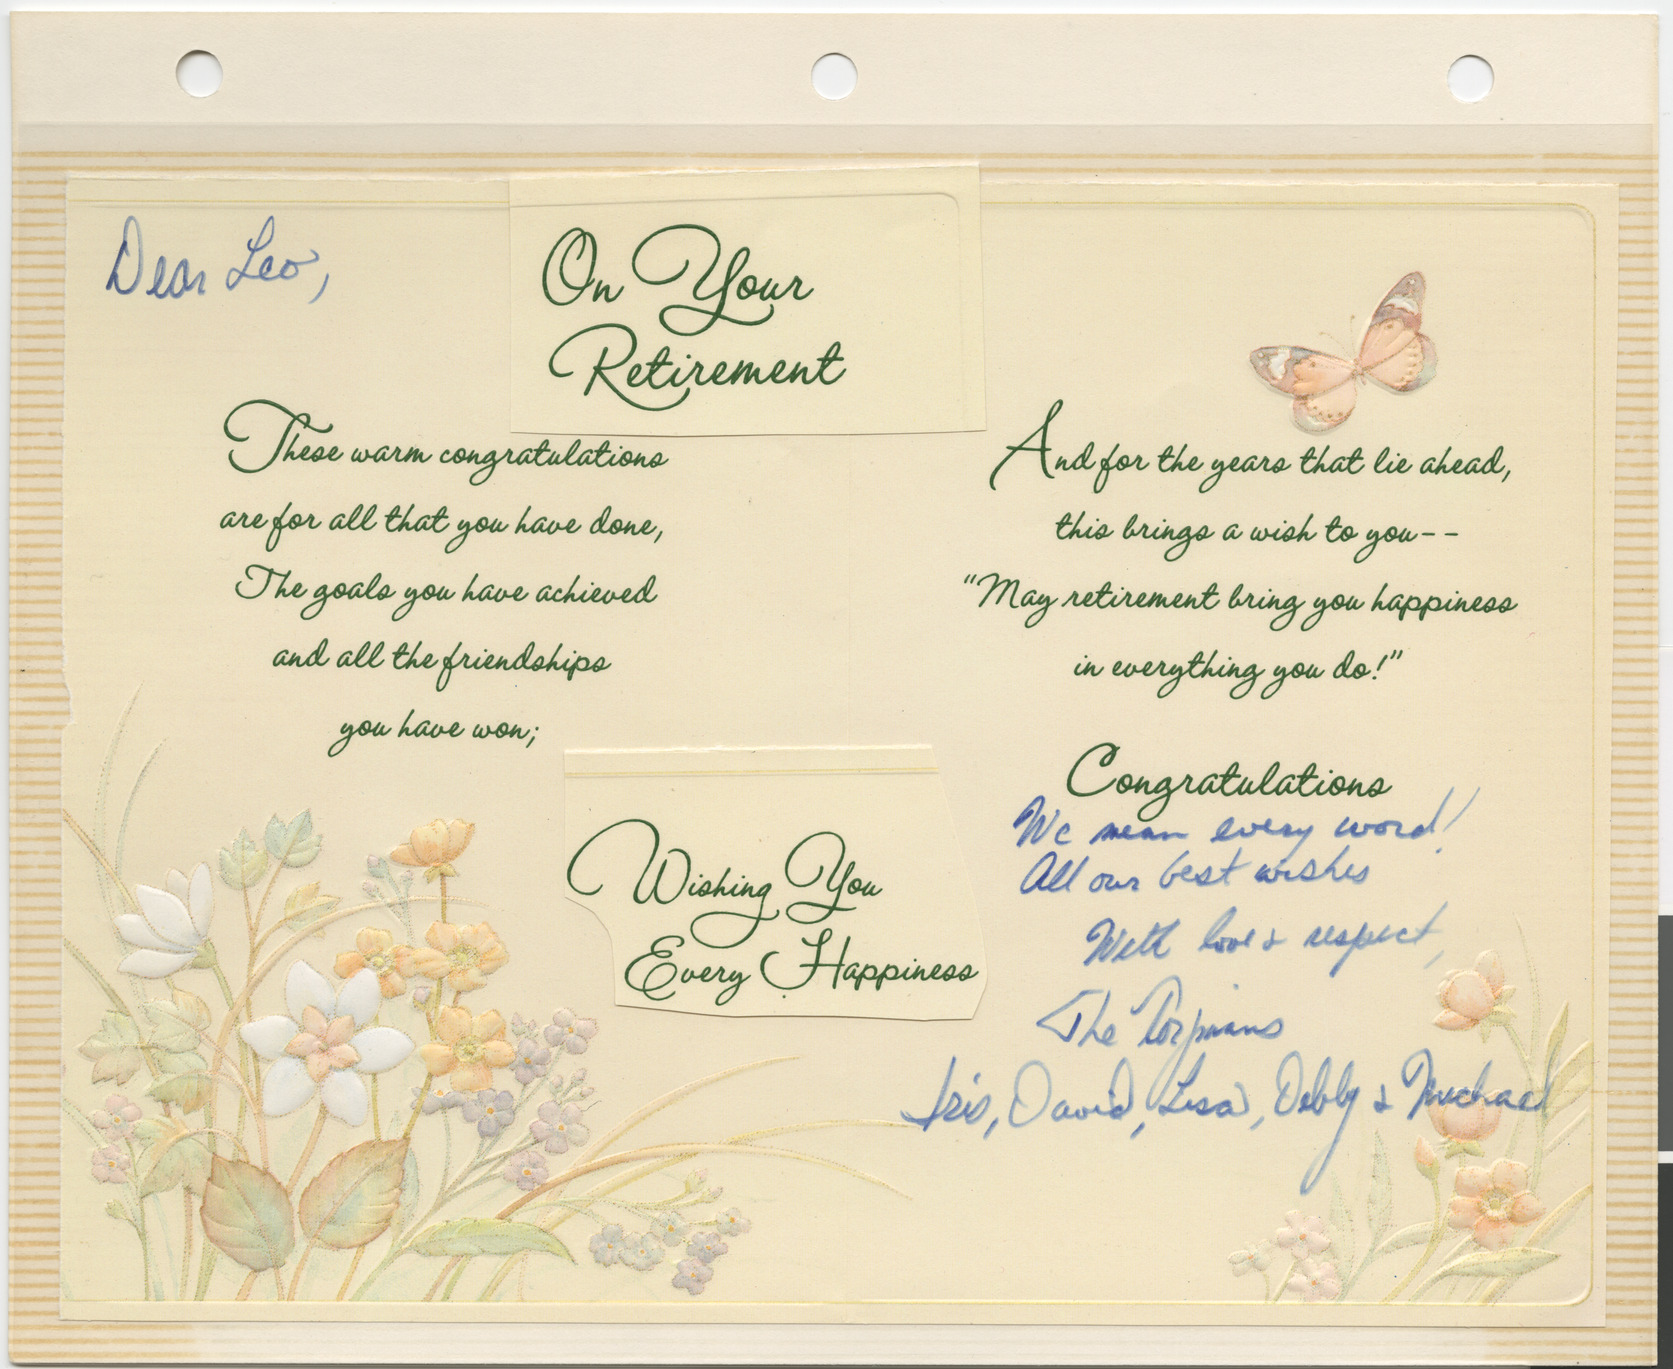 Dear Leo,
On Your
Retirement
These warm congratulations
are for all that you have done,
The goals you have achieved
and all the friendships
you have won;
Wishing You
Every Happiness
And for the years that lie ahead,
this brings a wish to you--
"May retirement bring you happiness
in everything you do!"
Congratulations
We mean every word!
All our best wishes
With love & respect,
The
Iris, David, Lisa, Debby & Michael